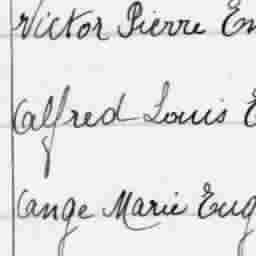 Victor Pierre Em
Alfred Louis E
Ange Marie Eug